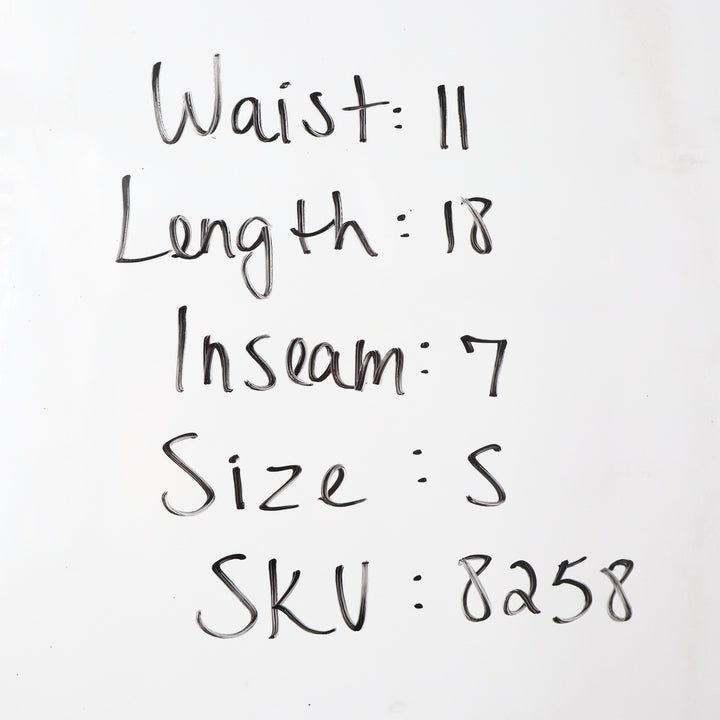 Waist: 11
Length: 18
Inseam: 7
Size: S
SKU: 8258